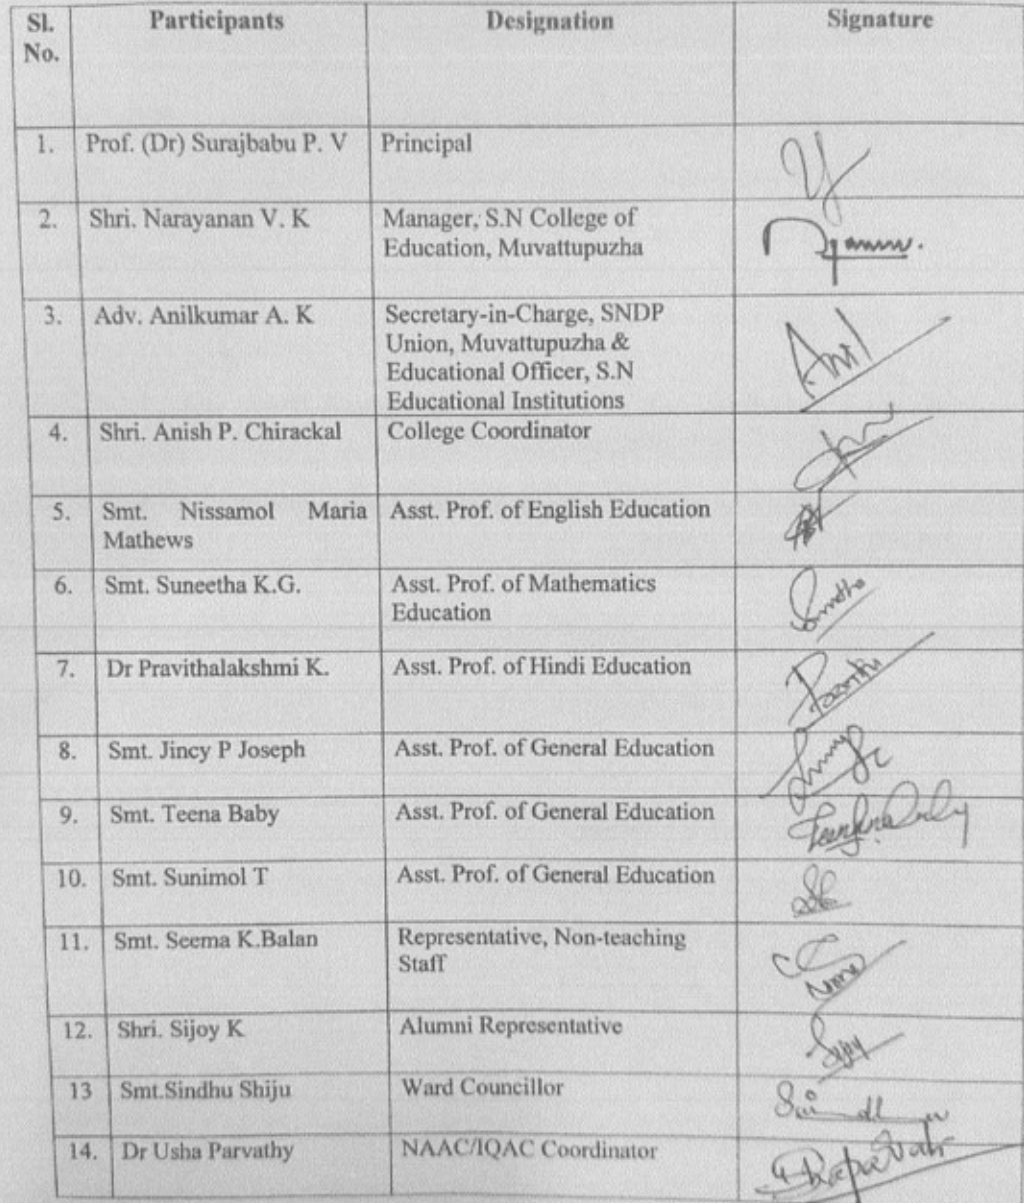 Sl. Participants Designation Signature
No.
1. Prof. (Dr) Surajbabu P. V Principal
2. Shri. Narayanan V. K Manager, S.N College of
Education, Muvattupuzha
3. Adv. Anilkumar A. K Secretary-in-Charge, SNDP
Union, Muvattupuzha &
Educational Officer, S.N
Educational Institutions
4. Shri. Anish P. Chirackal College Coordinator
5. Smt. Nissamol Maria Asst. Prof. of English Education
Mathews
6. Smt. Suneetha K.G. Asst. Prof. of Mathematics
Education
7. Dr Pravithalakshmi K. Asst. Prof. of Hindi Education
8. Smt. Jincy P Joseph Asst. Prof. of General Education
9. Smt. Teena Baby Asst. Prof. of General Education
10. Smt. Sunimol T Asst. Prof. of General Education
11. Smt. Seema K.Balan Representative, Non-teaching
Staff
12. Shri. Sijoy K Alumni Representative Sijoy
13 Smt.Sindhu Shiju Ward Councillor Sindhu
14. Dr Usha Parvathy NAAC/IQAC Coordinator